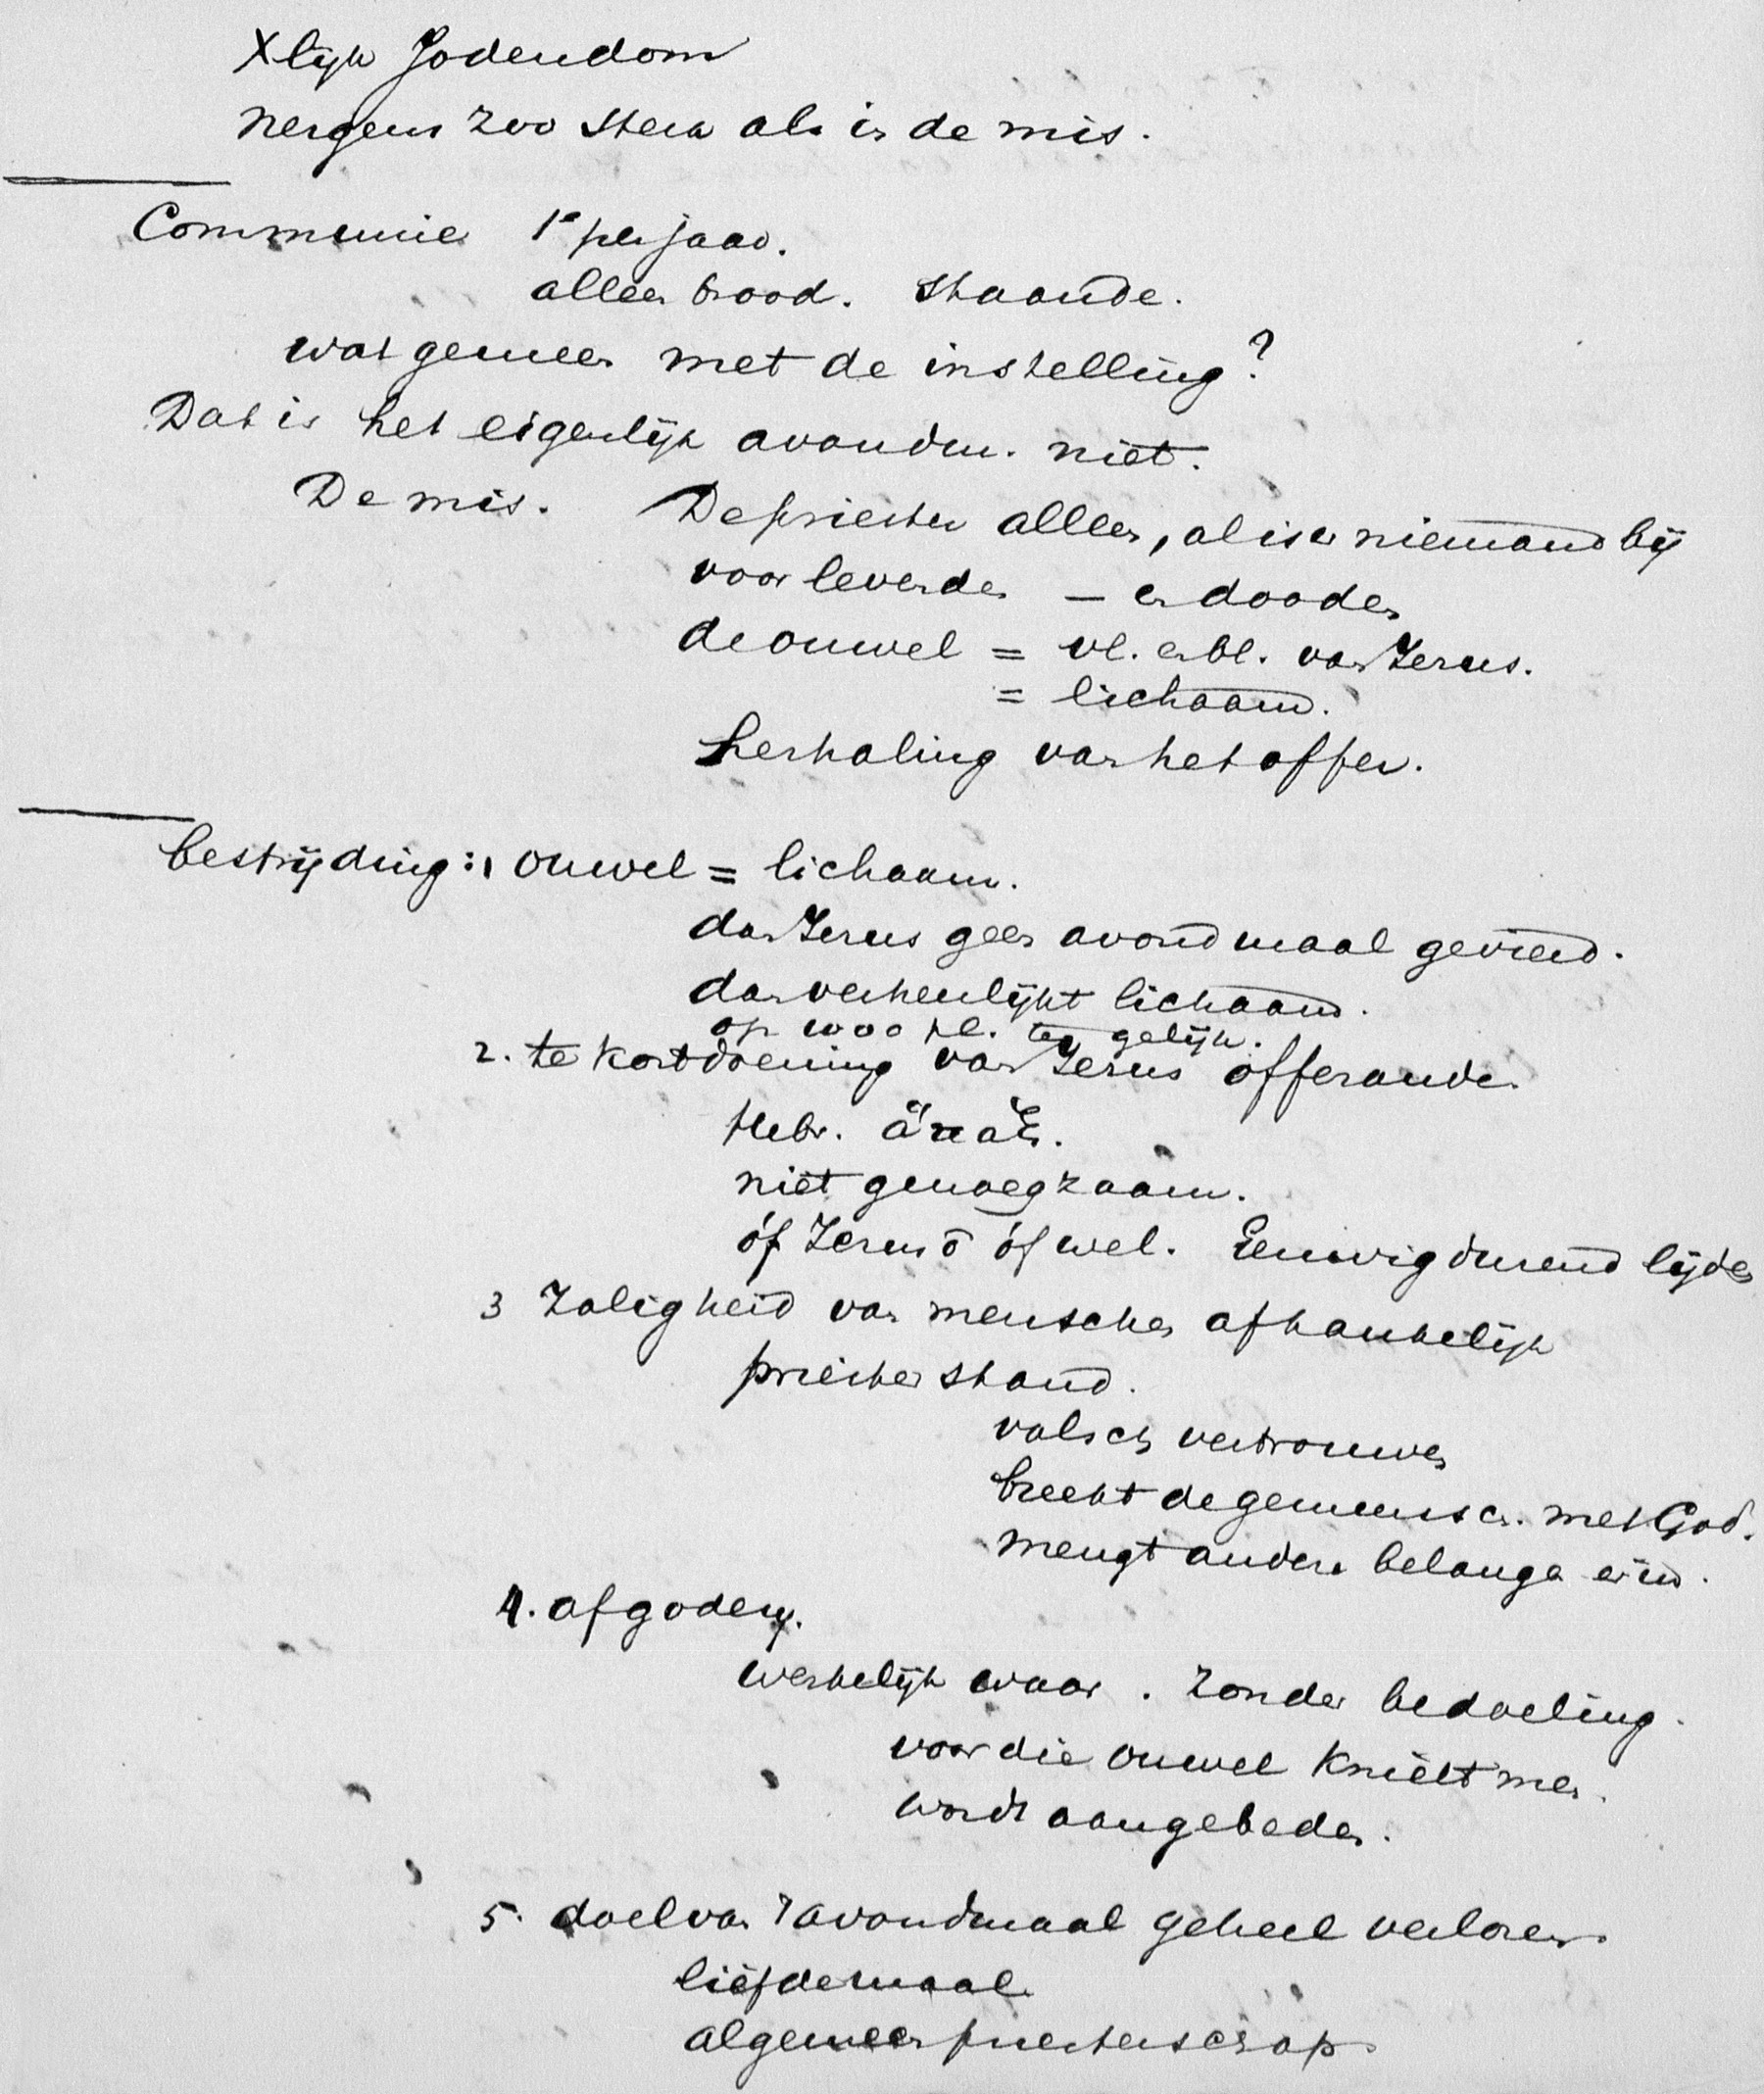 Xlijk Jodendom
nergens zoo sterk als in de mis.
Communie 1x per jaar.
alleen brood. staande.
wat gemeen met de instelling?
Dat is het eigenlijk avondm. niet.
De mis. De priester allleen, al is er niemand bij
voor levenden — en dooden
de ouwel = vl. en bl. van Jezus.
= lichaam.
herhaling van het offer.
bestrijding: 1 ouwel = lichaam.
dan Jezus geen avondmaal gevierd.
dan verheerlijkt lichaam.
op 1000 pl. te gelijk.
2. te kortdoening van Jezus offerande.
Hebr. ἅπαξ.
niet genoegzaam.
óf Jezus ō óf wel. Eeuwigdurend lijden
3 Zaligheid van menschen afhankelijk
priesterstand.
valsch vertrouwen
breekt de gemeensch. met God.
mengt andere belangen erin.
4. afgoderij.
werkelijk waar. zonder bedoeling.
voor die ouwel knielt men.
wordt aangebeden.
5. doel van 't avondmaal geheel verloren.
liefdemaal
algemeen priesterschap.